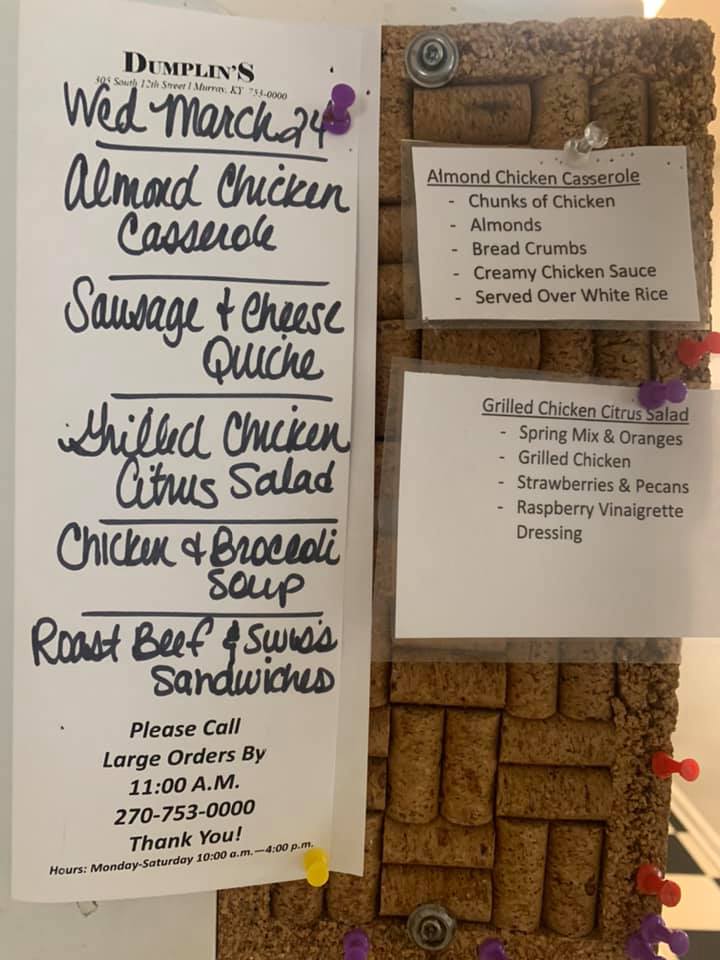 DUMPLIN'S
305 South 12th Street | Murray, KY 753-0000
Wed March 24
Almond Chicken
Casserole
Sausage + Cheese
Quiche
Grilled Chicken
Citrus Salad
Chicken & Broccoli
Soup
Roast Beef & Swiss
Sandwiches
Please Call
Large Orders By
11:00 A.M.
270-753-0000
Thank You!
Hours: Monday-Saturday 10:00 a.m.—4:00 p.m.
Almond Chicken Casserole
- Chunks of Chicken
- Almonds
- Bread Crumbs
- Creamy Chicken Sauce
- Served Over White Rice
Grilled Chicken Citrus Salad
- Spring Mix & Oranges
- Grilled Chicken
- Strawberries & Pecans
- Raspberry Vinaigrette
Dressing